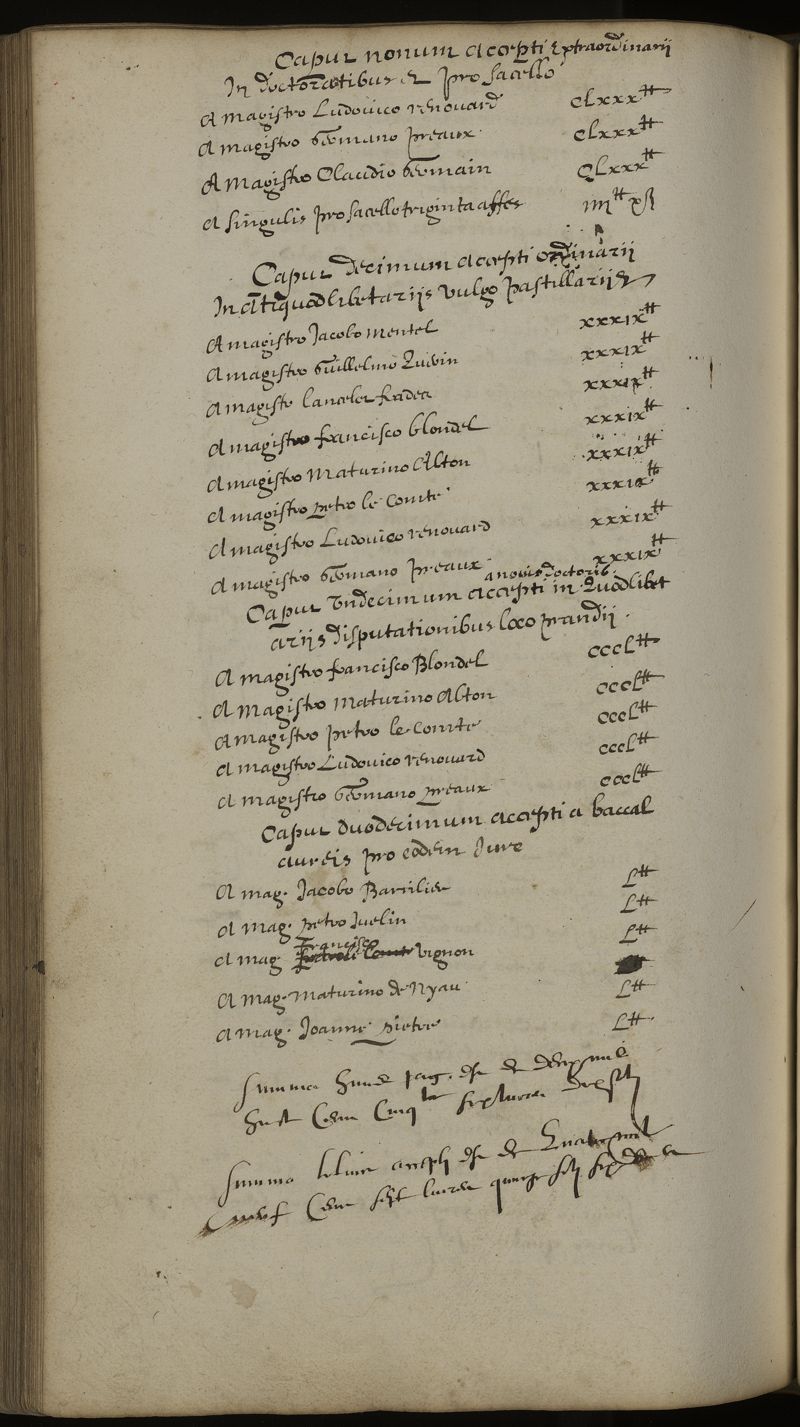 Caput nonum accepti Extraordinarii
In doctoratibus et pro sacello
A magistro Ludovico renouard clxxx tt
A magistro Germano preaux clxxx tt
A Magistro Claudio Germain clxxx tt
A singulis pro sacello triginta asses iiii tt x s
Caput decimum accepti ordinarii
In antiquodlibetariis vulgo pastillariis
A magistro Jacobo mentel xxxix tt
A magistro Guillelmo Quivin xxxix tt
A magistro lancelot fradea xxxix tt
A magistro francisco blondel xxxix tt
A magistro Maturino Alton xxxix tt
A magistro petro le comte xxxix tt
A magistro Ludovico renouard xxxix tt
A magistro Germano preaux xxxix tt
a novis doctorib.
Caput Undecimum accepti in Quodlibet
ariis disputationibus loco prandii.
A magistro francisco Blondel cccl tt
A magistro Maturino Alton cccl tt
A magistro petro le comte cccl tt
A magistro Ludovico renouard cccl tt
A magistro Germano preaux cccl tt
Caput duodecimum accepti a baccal
aureis pro eodem Jure
A mag. Jacobo Barrilier L tt
A mag. petro Juelin L tt
Francisco
A mag vignon L tt
A mag. Maturino de Nyau L tt
A mag. Joanne pietre L tt
Summa est de deux mil
huit Cens livres
Summa est de Quatre mil
neuf Cens sept livres quinze